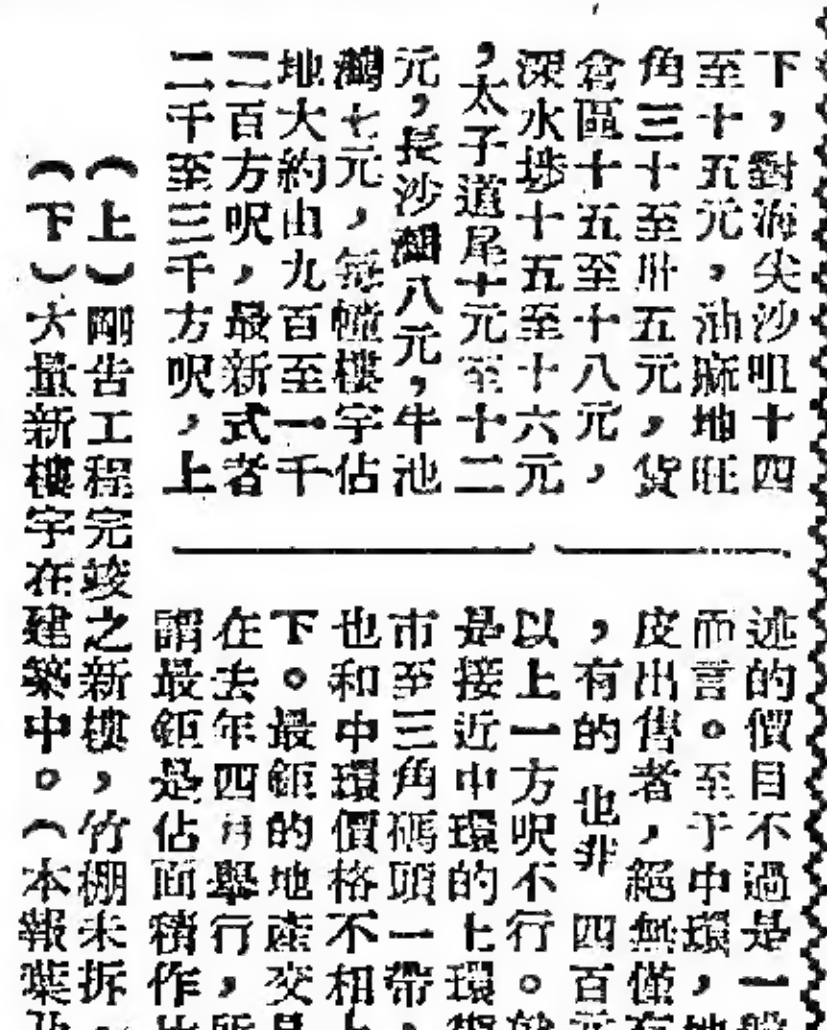 下，對海尖沙咀十四
至十五元，油麻地旺
角三十至卅五元，貨
倉區十五至十八元，
深水埗十五至十六元
，太子道尾十元至十二
元，長沙灣八元，牛池
灣七元，每幢樓宇佔
地大約由九百至一千
二百方呎，最新式者
二千至三千方呎，上
述的價目不過是一般
而言。至于中環，地
皮出售者，絕無僅有
，有的也非四百元
以上一方呎不行。就
是接近中環的上環街
市至三角碼頭一帶，
也和中環價格不相上
下。最鉅的地產交易
在去年四月舉行，所
謂最鉅是佔面積作比
（上）剛吿工程完竣之新樓，竹棚未拆。
（下）大量新樓宇在建築中。（本報葉乃